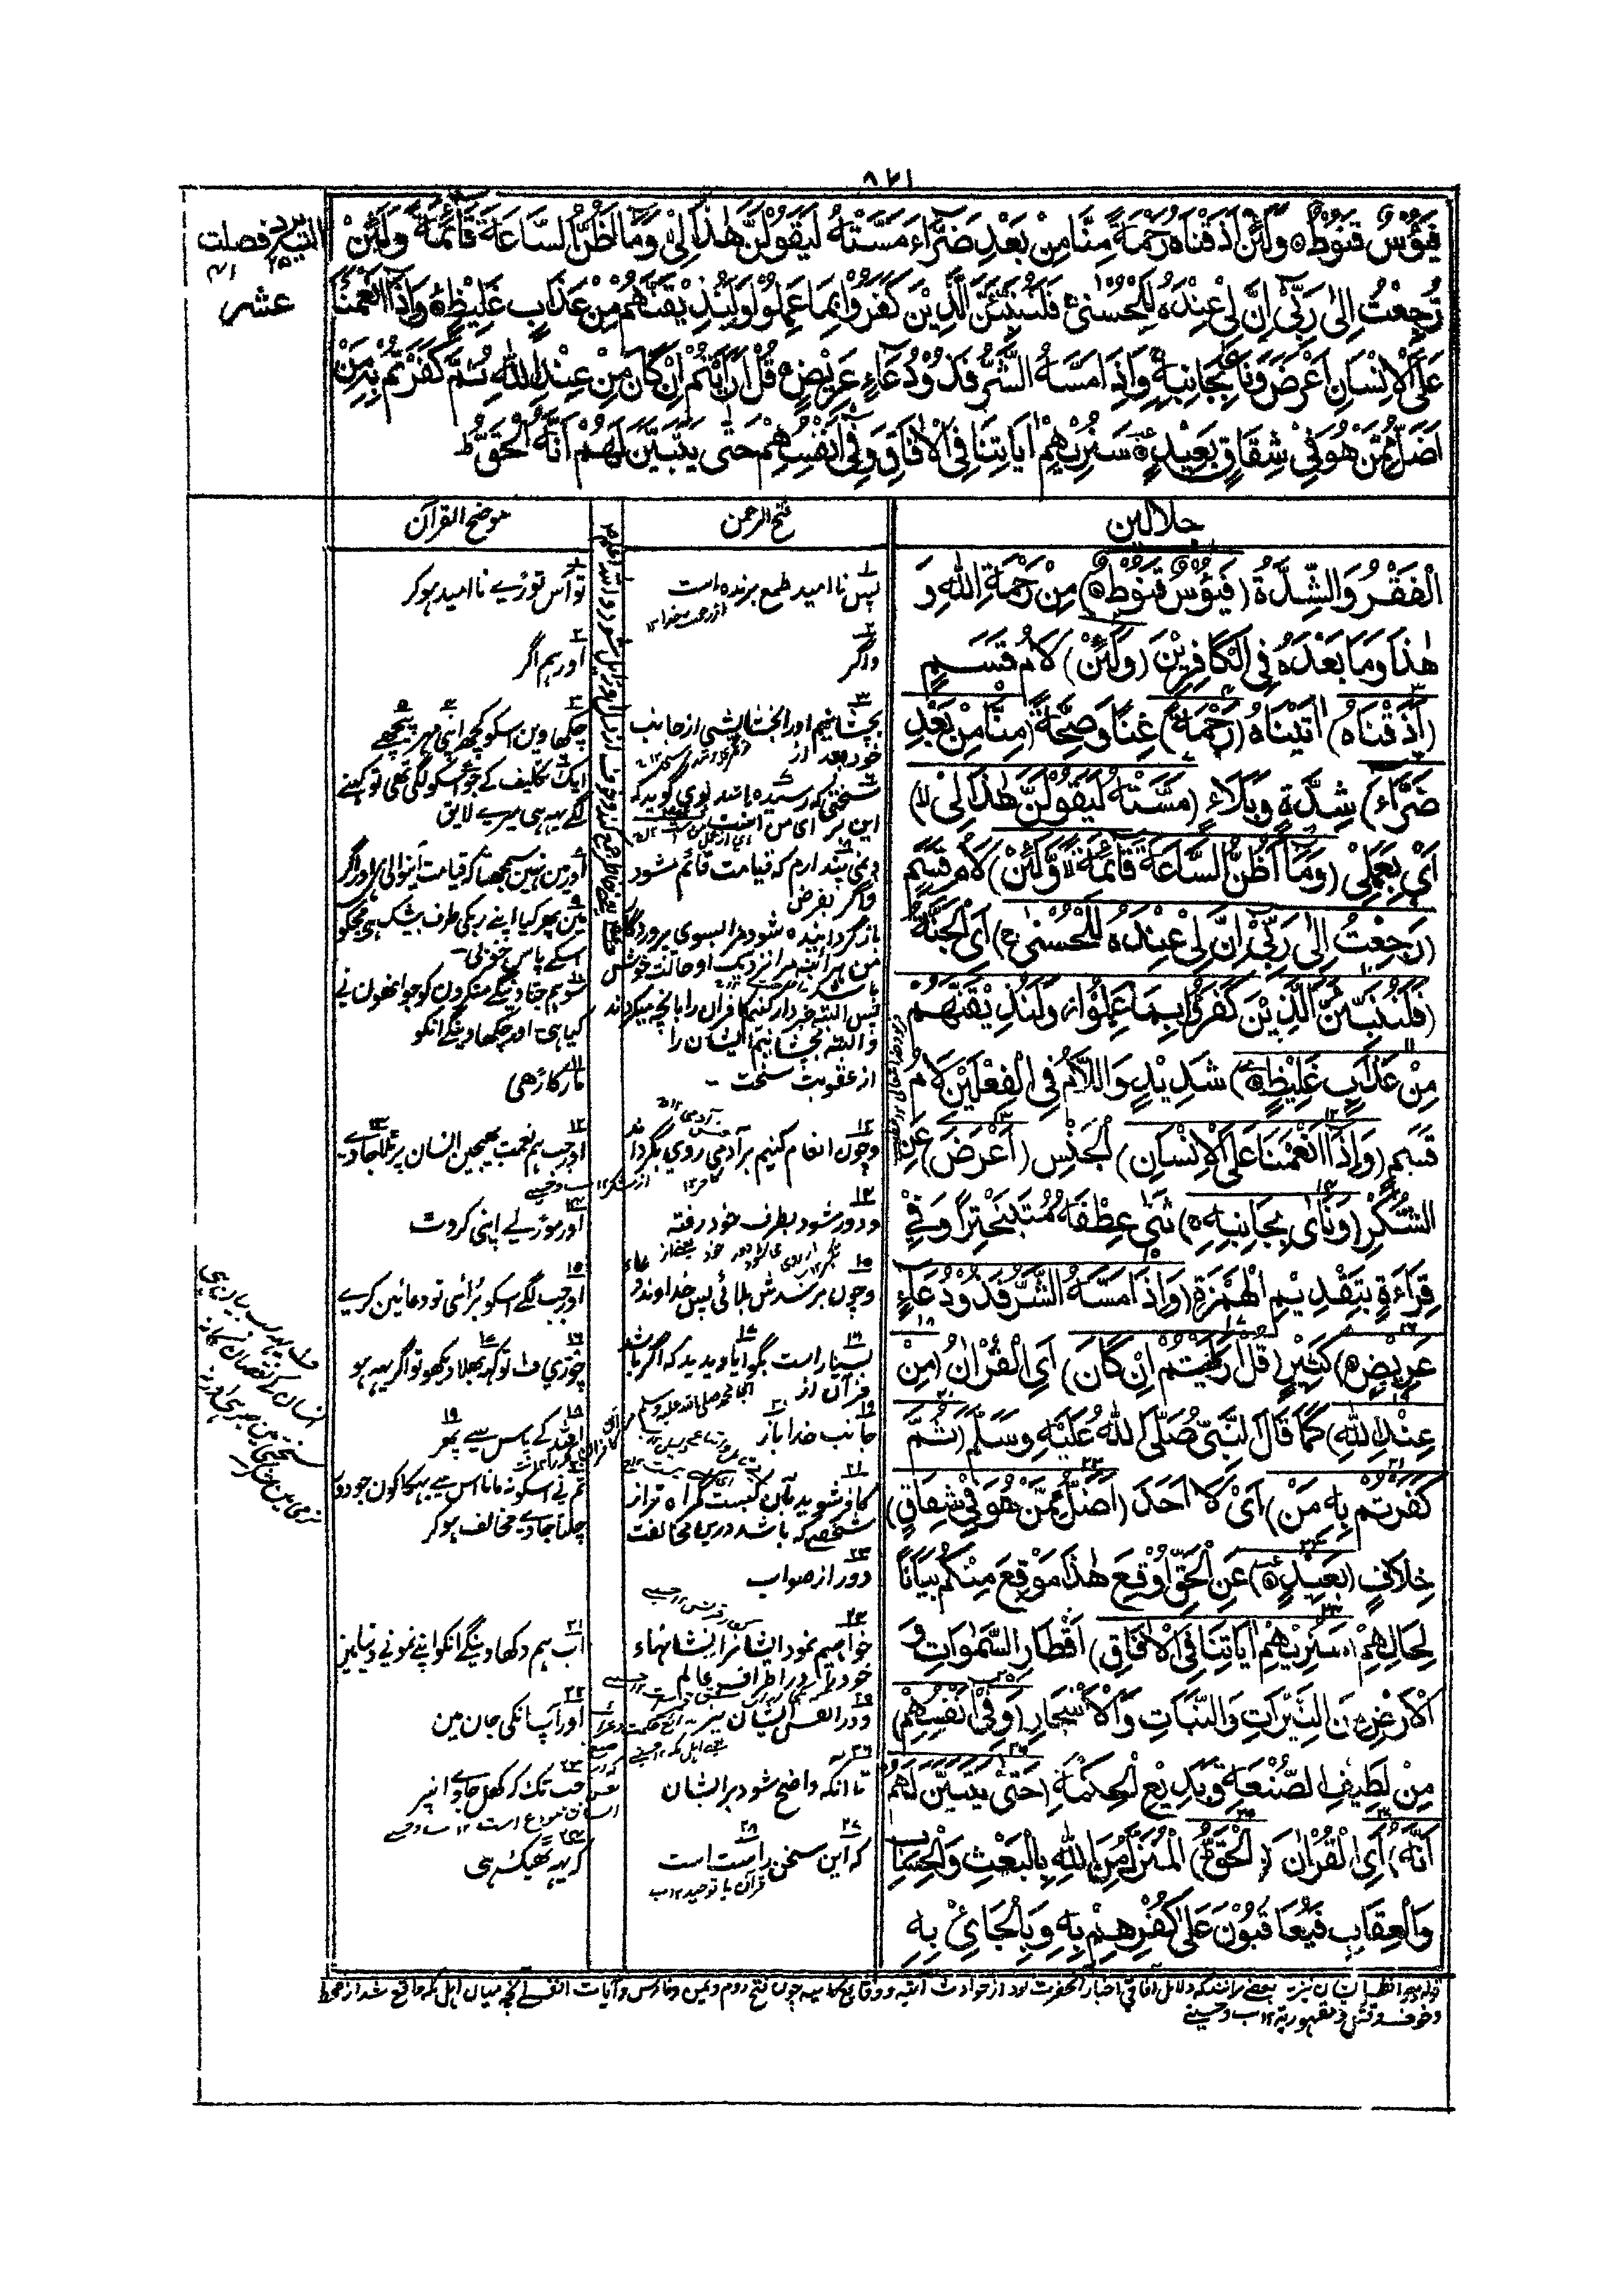 ٨٢١
فَيَؤُسٌ قَنُوْطٌ۝ وَلَئِنْ اَذَقْنَاهُ رَحْمَةً مِنَّا مِنْ بَعْدِ ضَرَّاءَ مَسَّتْهُ لَيَقُوْلَنَّ هٰذَا لِيْ وَمَا اَظُنُّ السَّاعَةَ قَائِمَةً وَلَئِنْ
رُجِعْتُ اِلٰى رَبِّيْ اِنَّ لِيْ عِنْدَهٗ لَلْحُسْنٰى فَلَنُنَبِّئَنَّ الَّذِيْنَ كَفَرُوْا بِمَا عَمِلُوْا وَلَنُذِيْقَنَّهُمْ مِنْ عَذَابٍ غَلِيْظٍ۝ وَاِذَا اَنْعَمْنَا
عَلَى الْاِنْسَانِ اَعْرَضَ وَنَاٰ بِجَانِبِهٖ وَاِذَا مَسَّهُ الشَّرُّ فَذُوْ دُعَاءٍ عَرِيْضٍ۝ قُلْ اَرَاَيْتُمْ اِنْ كَانَ مِنْ عِنْدِ اللهِ ثُمَّ كَفَرْتُمْ بِهٖ مَنْ
اَضَلُّ مِمَّنْ هُوَ فِيْ شِقَاقٍ بَعِيْدٍ۝ سَنُرِيْهِمْ اٰيَاتِنَا فِي الْاٰفَاقِ وَفِيْ اَنْفُسِهِمْ حَتّٰى يَتَبَيَّنَ لَهُمْ اَنَّهُ الْحَقُّ ط
فصلت
٢٥
٤١
عشر
جلالين
الْفَقْرُ وَالشِّدَّةُ (فَيَؤُسٌ قَنُوْطٌ۝) مِنْ رَحْمَةِ اللهِ وَ
هٰذَا وَمَا بَعْدَهٗ فِي الْكَافِرِيْنَ (وَلَئِنْ) لَامُ قَسَمٍ
(اَذَقْنَاهُ) اٰتَيْنَاهُ (رَحْمَةً) غِنًا وَصِحَّةً (مِنَّا مِنْ بَعْدِ
ضَرَّاءَ) شِدَّةٍ وَبَلَاءٍ (مَسَّتْهُ لَيَقُوْلَنَّ هٰذَا لِيْ)
اَيْ بِعَمَلِيْ (وَمَا اَظُنُّ السَّاعَةَ قَائِمَةً وَّلَئِنْ) لَامُ قَسَمٍ
(رُجِعْتُ اِلٰى رَبِّيْ اِنَّ لِيْ عِنْدَهٗ لَلْحُسْنٰى) اَيِ الْجَنَّةُ
(فَلَنُنَبِّئَنَّ الَّذِيْنَ كَفَرُوْا بِمَا عَمِلُوْا وَلَنُذِيْقَنَّهُمْ
مِنْ عَذَابٍ غَلِيْظٍ۝) شَدِيْدٍ وَاللَّامُ فِي الْفِعْلَيْنِ لَامُ
قَسَمٍ (وَاِذَا اَنْعَمْنَا عَلَى الْاِنْسَانِ) الْجِنْسِ (اَعْرَضَ) عَنِ
الشُّكْرِ (وَنَاٰى بِجَانِبِهٖ) ثَنٰى عِطْفَهٗ مُتَبَخْتِرًا وَفِيْ
قِرَاءَةٍ بِتَقْدِيْمِ الْهَمْزَةِ (وَاِذَا مَسَّهُ الشَّرُّ فَذُوْ دُعَاءٍ
عَرِيْضٍ۝) كَثِيْرٍ (قُلْ اَرَاَيْتُمْ اِنْ كَانَ) اَيِ الْقُرْاٰنُ (مِنْ
عِنْدِ اللهِ) كَمَا قَالَ النَّبِيُّ صَلَّى اللهُ عَلَيْهِ وَسَلَّمَ (ثُمَّ
كَفَرْتُمْ بِهٖ مَنْ) اَيْ لَا اَحَدَ (اَضَلُّ مِمَّنْ هُوَ فِيْ شِقَاقٍ)
خِلَافٍ (بَعِيْدٍ۝) عَنِ الْحَقِّ اَوْقَعَ هٰذَا مَوْقِعَ مِنْكُمْ بَيَانًا
لِحَالِهِمْ (سَنُرِيْهِمْ اٰيَاتِنَا فِي الْاٰفَاقِ) اَقْطَارِ السَّمٰوَاتِ وَ
الْاَرْضِ مِنَ النَّيِّرَاتِ وَالنَّبَاتِ وَالْاَشْجَارِ (وَفِيْ اَنْفُسِهِمْ)
مِنْ لَطِيْفِ الصَّنْعَةِ وَبَدِيْعِ الْحِكْمَةِ (حَتّٰى يَتَبَيَّنَ لَهُمْ
اَنَّهٗ) اَيِ الْقُرْاٰنَ (الْحَقُّ) الْمُنَزَّلُ مِنَ اللهِ بِالْبَعْثِ وَالْحِسَابِ
وَالْعِقَابِ فَيُعَاقَبُوْنَ عَلٰى كُفْرِهِمْ بِهٖ وَبِالْجَائِيْ بِهٖ
فتح الرحمن
پس نا امید طمع برنده است
از رحمت خدا ١٢
و اگر
بچشانیم اورا بخشایشی از جانب
خود بعد از
سختی که رسیده باشد بوی گوید که
این برای من است
و نمی پندارم که قیامت قائم شود
و اگر بفرض
باز گردانیده شود مرا بسوی پروردگار
من هر آئینه مرا نزدیک او حالت خوش
باشد
پس البته خبردار کنیم کافران را بانچه میکردند
و البته بچشانیم ایشان را
از عقوبت سخت -
و چون انعام کنیم بر آدمی روی بگرداند
و دور شود بطرف خود رفته
و چون برسدش بلائی پس خداوند دعاء
بسیار است بگو آیا دیدید که اگر باشد
قرآن از
جانب خدا باز
کافر شوید بآن کیست گمراه تر از
شخصے که باشد در مخالفت
دور از صواب
خواهیم نمود ایشانرا نشانهاء
خود را در اطراف عالم
و در انفس ایشان نیز
تا آنکه واضح شود برایشان
که این سخن راست است
قرآن یا توحید ١٢ ب
موضح القرآن
تو آس توڑے نا امید ہو کر
اور ہم اگر
چکھاوین اسکو کچھ اپنی مہر پیچھے
ایک تکلیف کے جو اسکو لگی تھی تو کہنے
لگے یہہ ہی میرے لایق
اور مین نہین سمجھتا کہ قیامت آنیوالی ہی اور اگر
مین پھر گیا اپنے رب کی طرف بیشک ہی مجھکو
اسکے پاس خوبی -
سو ہم جتا دینگے منکرون کو جو انھون نے
کیا ہی اور چکھا دینگے انکو
مار گاڑھی
اور جب ہم نعمت بھیجین انسان پر ٹلا جاوے
اور موڑ لے اپنی کروٹ
اور جب لگے اسکو برائی تو دعائین کرے
چوڑی ف تو کہہ بھلا دیکھو تو اگر یہہ ہو
اللہ کے پاس سے پھر
تم نے اسکو نہ مانا اس سے بہکا کون جو دور
چلتا جاوے مخالف ہو کر
اب ہم دکھاوینگے انکو اپنے نمونے دنیا مین
اور آپ انکی جان مین
جب تک کہ کھل جاوے انپر
کہ یہہ ٹھیک ہی